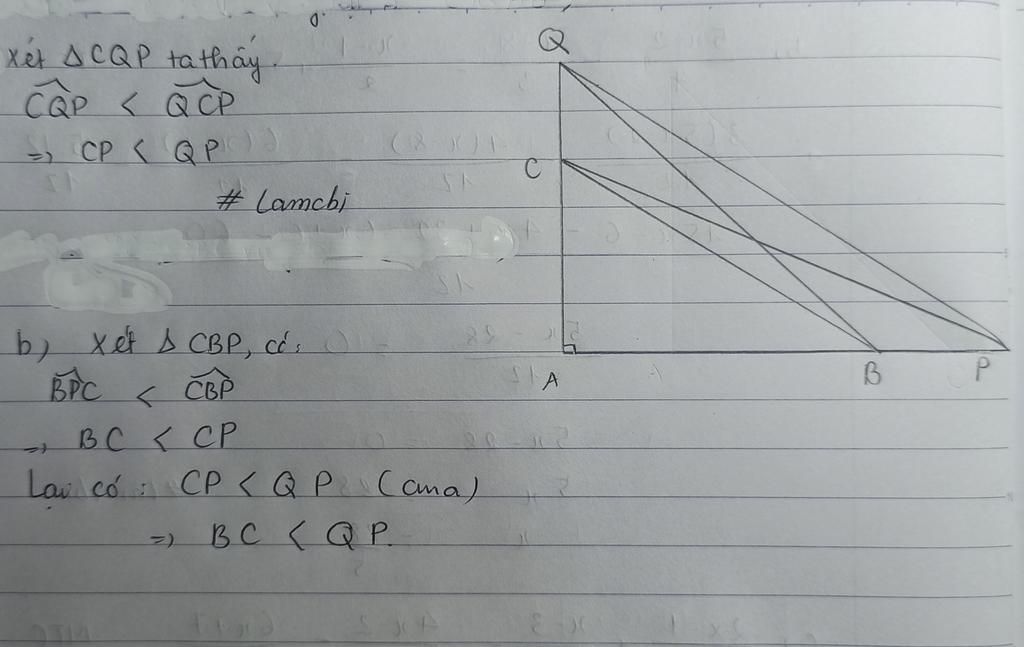 Xét Δ CQP ta thấy.
\widehat{CQP} < \widehat{QCP}
=> CP < QP
# Lamcbi
b) Xét Δ CBP, có:
\widehat{BPC} < \widehat{CBP}
=> BC < CP
Lại có: CP < QP (cma)
=> BC < QP.
Q
C
A
B
P